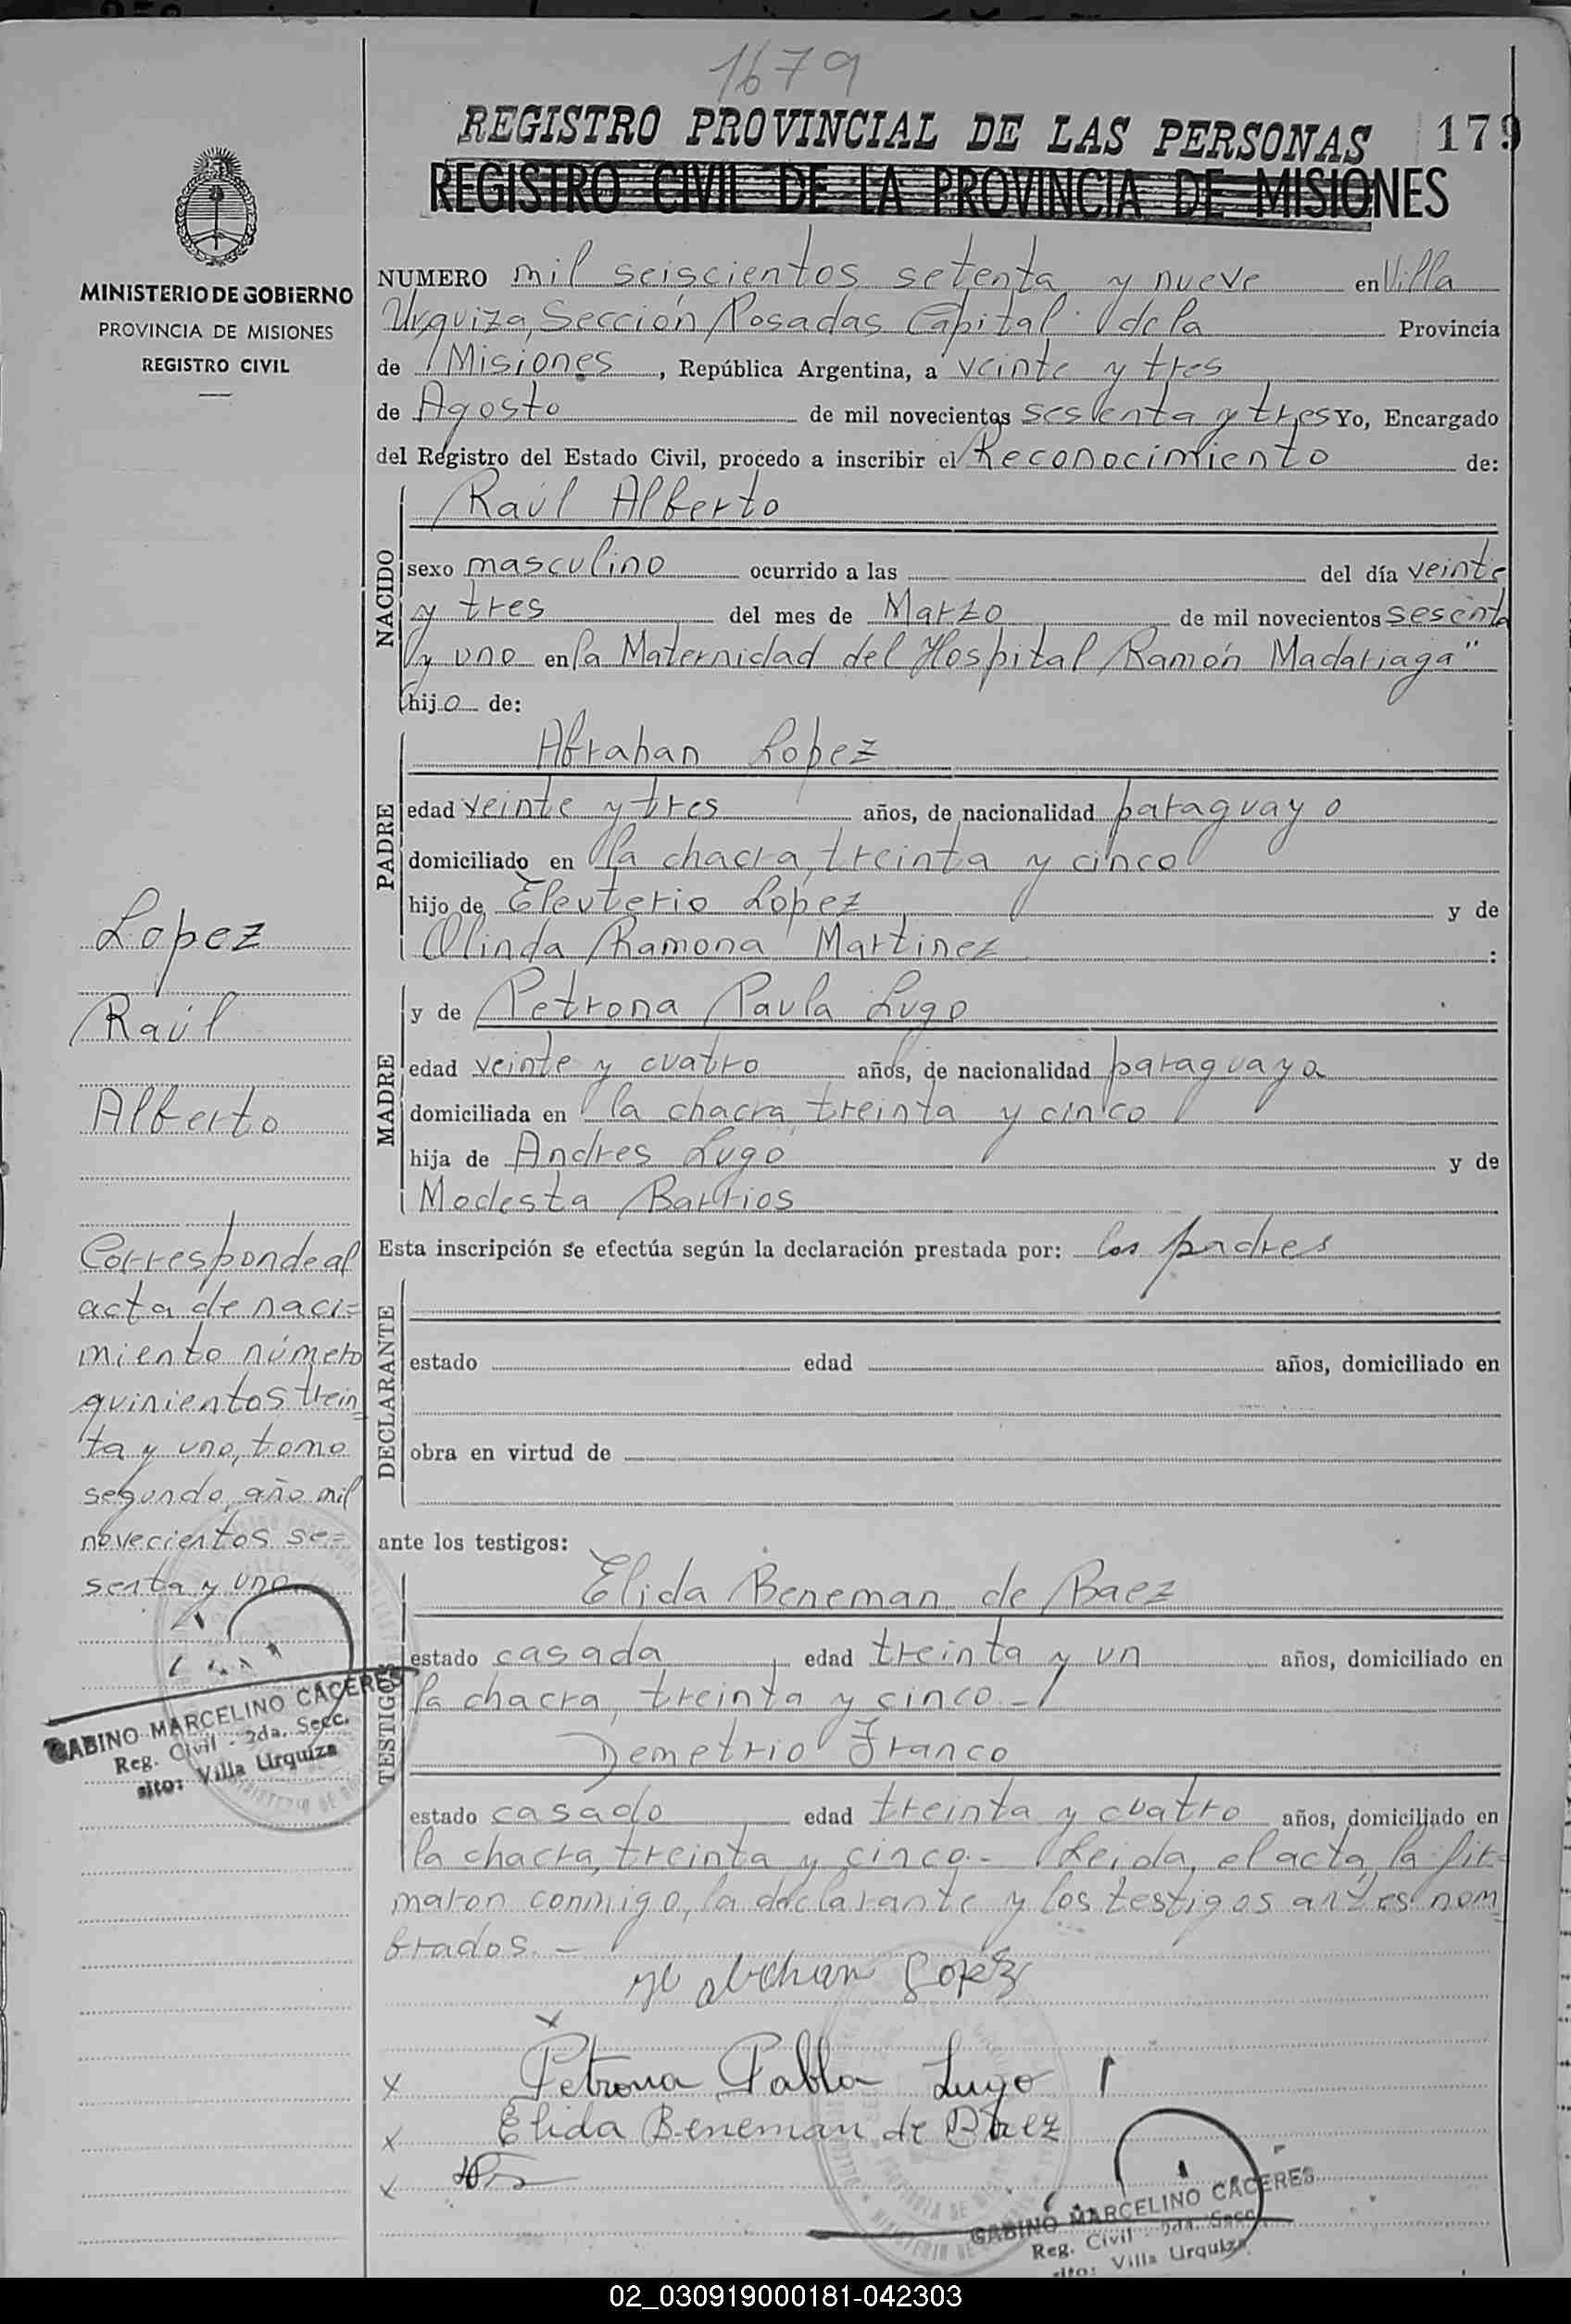 1679
REGISTRO PROVINCIAL DE LAS PERSONAS
179
REGISTRO CIVIL DE LA PROVINCIA DE MISIONES
MINISTERIO DE GOBIERNO
PROVINCIA DE MISIONES
REGISTRO CIVIL
NUMERO mil seiscientos setenta y nueve en Villa
Urquiza, Sección Posadas Capital de la Provincia
de Misiones, República Argentina, a veinte y tres
de Agosto de mil novecientos sesenta y tres Yo, Encargado
del Registro del Estado Civil, procedo a inscribir el Reconocimiento de:
NACIDO
Raúl Alberto
sexo masculino ocurrido a las del día veinte
y tres del mes de Marzo de mil novecientos sesenta
y uno en la Maternidad del Hospital Ramón Madariaga"
hijo de:
PADRE
Abrahan Lopez
edad veinte y tres años, de nacionalidad paraguayo
domiciliado en la chacra, treinta y cinco
hijo de Eleuterio Lopez y de
Olinda Ramona Martinez :
MADRE
y de Petrona Paula Lugo
edad veinte y cuatro años, de nacionalidad paraguaya
domiciliada en la chacra, treinta y cinco
hija de Andres Lugo y de
Modesta Barrios
Esta inscripción se efectúa según la declaración prestada por: los padres
DECLARANTE
estado edad años, domiciliado en
obra en virtud de
ante los testigos:
TESTIGOS
Elida Beneman de Baez
estado casada edad treinta y un años, domiciliado en
la chacra, treinta y cinco.-
Demetrio Franco
estado casado edad treinta y cuatro años, domiciliado en
la chacra, treinta y cinco.- Leida, el acta, la fir-
maron conmigo, la declarante y los testigos antes nom
brados.-
Lopez
Raúl
Alberto
Corresponde al
acta de naci=
miento número
quinientos trein
ta y uno, tomo
segundo, año mil
novecientos se=
senta y uno.
GABINO MARCELINO CACERES
Reg. Civil - 2da. Secc.
sito: Villa Urquiza
Lopez
x
x Petrona Pabla Lugo
x Elida Beneman de Baez
x
GABINO MARCELINO CACERES
Reg. Civil - 2da. Secc.
sito: Villa Urquiza
02_030919000181-042303